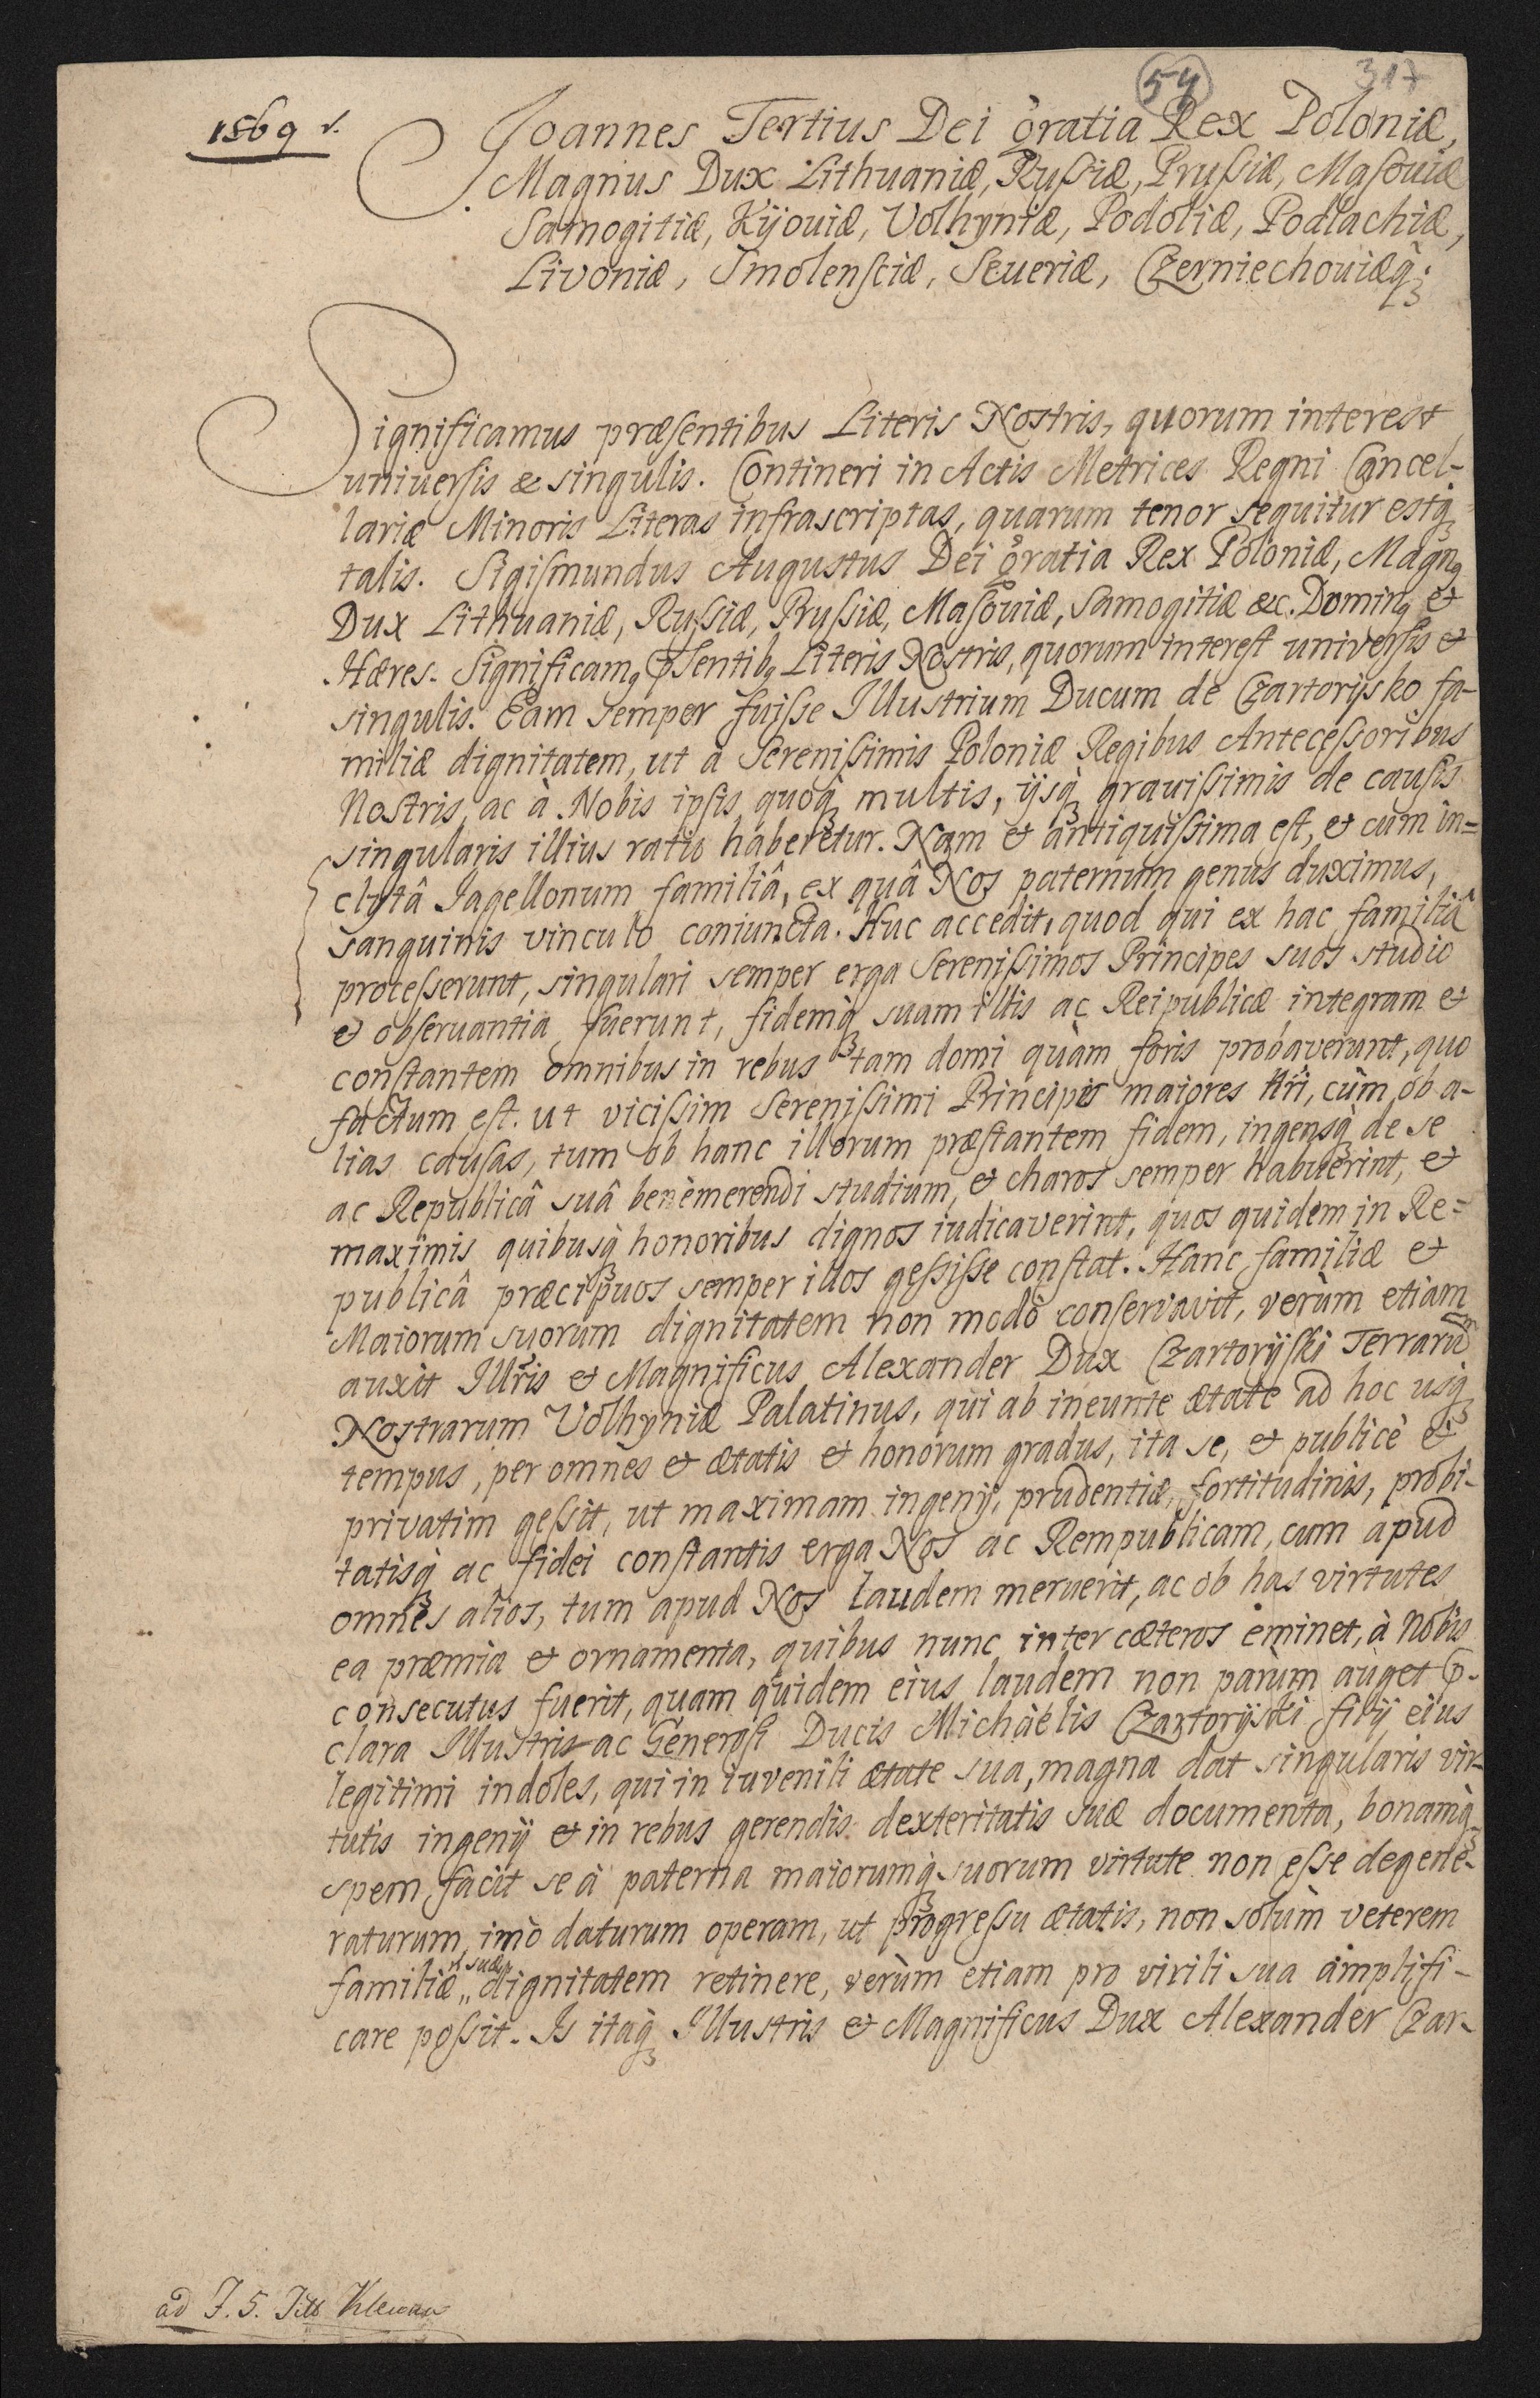 54
317
1569 r.
Joannes Tertius Dei gratia Rex Poloniæ,
Magnus Dux Lithuaniæ, Rußiæ, Prußiæ, Masouiæ
Samogitiæ, Kijouiæ, Volhyniæ, Podoliæ, Podlachiæ,
Livoniæ, Smolensciæ, Seueriæ, Czerniechouiæq;
Significamus præsentibus Literis Nostris, quorum interest
uniuersis & singulis. Contineri in Actis Metrices Regni Cancel-
lariæ Minoris Literas infrascriptas, quarum tenor sequitur estq;
talis. Sigismundus Augustus Dei gratia Rex Poloniæ, Magnꝰ
Dux Lithuaniæ, Rußiæ, Prußiæ, Masouiæ, Samogitiæ &c. Dominꝰ et
Hæres. Significamꝰ pꝛsentibꝰ Literis Nostris, quorum interest universis et
singulis. Eam semper fuisse Illustrium Ducum de Czartorijsko fa-
miliæ dignitatem, ut a Sereniſsimis Poloniæ Regibus Anteceſsoribus
Nostris, ac à Nobis ipsis quoq; multis, ijsq; grauiſsimis de causis
singularis illius ratio haberetur. Nam et antiquiſsima est, et cum in=
clytâ Jagellonum familiâ, ex quâ Nos paternum genus duximus,
sanguinis vinculo coniuncta. Huc accedit, quod qui ex hac familiâ
proceſserunt, singulari semper erga Sereniſsimos Principes suos studio
et obseruantia fuerunt, fidemq; suam illis ac Reipublicæ integram et
constantem omnibus in rebus tam domi quàm foris probaverunt, quo
factum est. ut viciſsim Sereniſsimi Principes maiores Nr̃i, cùm ob a-
lias causas, tum ob hanc illorum præstantem fidem, ingensq; de se
ac Republicâ suâ benèmerendi studium, et charos semper habuerint, et
maximis quibusq; honoribus dignos iudicaverint, quos quidem in Re=
publicâ præcipuos semper illos geſsiſse constat. Hanc familiæ et
Maiorum suorum dignitatem non modò conservavit, verùm etiam
auxit Illr̃is et Magnificus Alexander Dux Czartorijski Terrarũ
Nostrarum Volhyniæ Palatinus, qui ab ineunte ætate ad hoc usq;
tempus, per omnes et ætatis et honorum gradus, ita se, et publicè et
privatim geſsit, ut maximam ingenij, prudentiæ, fortitudinis, probi-
tatisq; ac fidei constantis erga Nos ac Rempublicam, cum apud
omnes alios, tum apud Nos laudem meruerit, ac ob has virtutes
ea præmia et ornamenta, quibus nunc inter cæteros eminet, à Nobis
consecutus fuerit, quam quidem eius laudem non parùm auget pꝛ-
clara Illustris ac Generosi Ducis Michaëlis Czartorijski filij eius
legitimi indoles, qui in iuvenili ætate sua, magna dat singularis vir-
tutis ingenij et in rebus gerendis dexteritatis suæ documenta, bonamq;
spem facit se à paterna maiorumq; suorum virtute non eſse degene-
raturum, imò daturum operam, ut progreſsu ætatis, non solùm veterem
familiæ suæ dignitatem retinere, verùm etiam pro virili sua amplifi-
care poſsit. Is itaq; Illustris et Magnificus Dux Alexander Czar-
ad J. 5. Titt Klewan